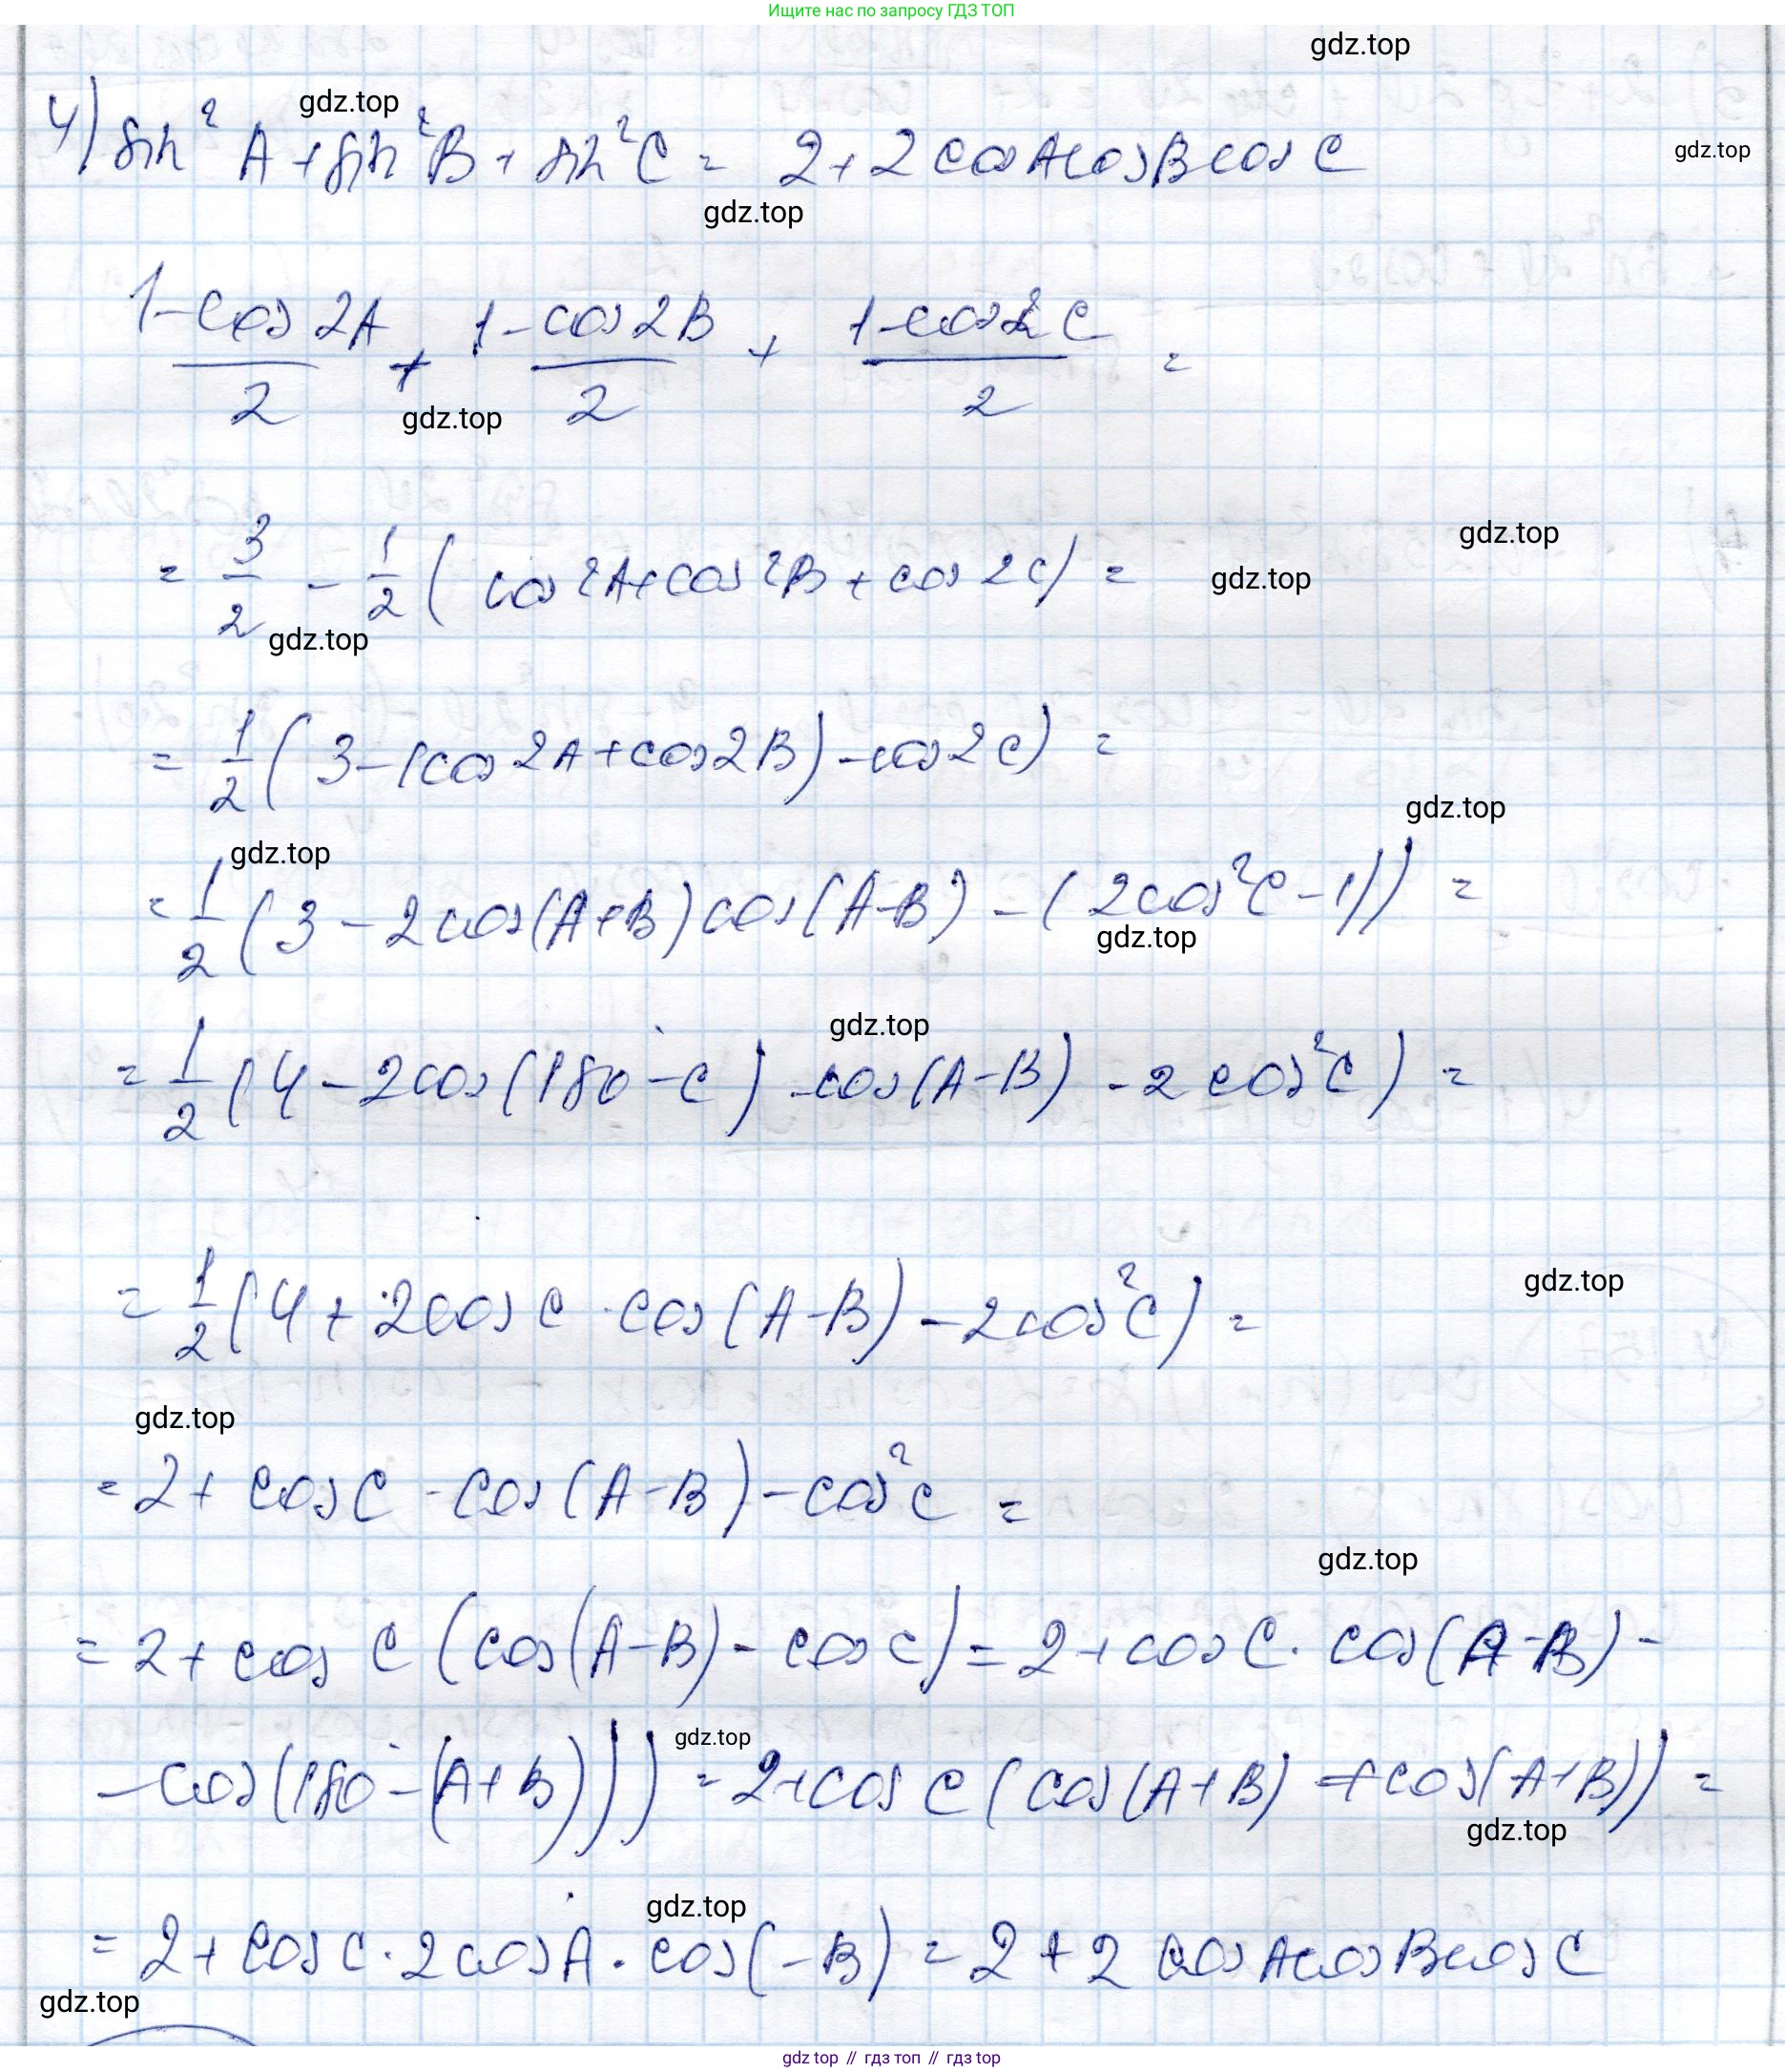 Ищите нас по запросу ГДЗ ТОП
gdz.top
gdz.top
4) sin² A + sin² B + sin² C = 2 + 2 cos A cos B cos C
gdz.top
gdz.top
(1 - cos 2A)/2 + (1 - cos 2B)/2 + (1 - cos 2C)/2 =
gdz.top
gdz.top
= 3/2 - 1/2 ( cos 2A + cos 2B + cos 2C) =
gdz.top
gdz.top
= 1/2 ( 3 - (cos 2A + cos 2B) - cos 2C) =
gdz.top
gdz.top
= 1/2 ( 3 - 2 cos(A+B) cos(A-B) - ( 2cos² C - 1)) =
gdz.top
gdz.top
= 1/2 ( 4 - 2cos (180 - C) · cos (A-B) - 2 cos² C ) =
gdz.top
= 1/2 ( 4 + 2cos C · cos (A-B) - 2cos² C ) =
gdz.top
= 2 + cos C · cos (A-B) - cos² C =
gdz.top
= 2 + cos C (cos (A-B) - cos C) = 2 + cos C · cos (A-B) -
gdz.top
- cos (180 - (A+B))) = 2 + cos C ( cos (A+B) + cos (A+B)) =
gdz.top
gdz.top
= 2 + cos C · 2 cos A · cos (-B) = 2 + 2 cos A cos B cos C
gdz.top
gdz top // гдз топ // гdz top